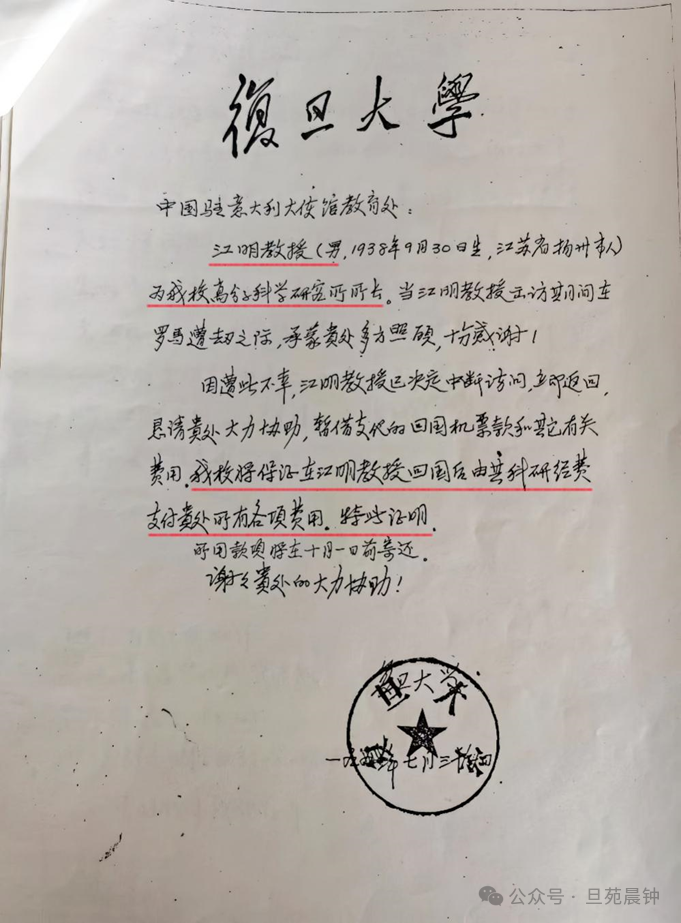 復旦大學
中国驻意大利大使馆教育处：
江明教授（男，1938年9月30日生，江苏省扬州市人）
为我校高分子科学研究所所长。当江明教授出访期间在
罗马遭劫之际，承蒙貴处多方照顾，十分感谢！
因遭此不幸，江明教授已决定中断访问，立即返回，
恳请貴处大力协助，暂借支他的回国机票款和其它有关
费用。我校将保证在江明教授回国后由其科研经费
支付貴处所有各项费用。特此证明。
所用款项将在十月一日前寄还。
谢谢貴处的大力协助！
复旦大学
一九九 年七月三十
公众号·旦苑晨钟